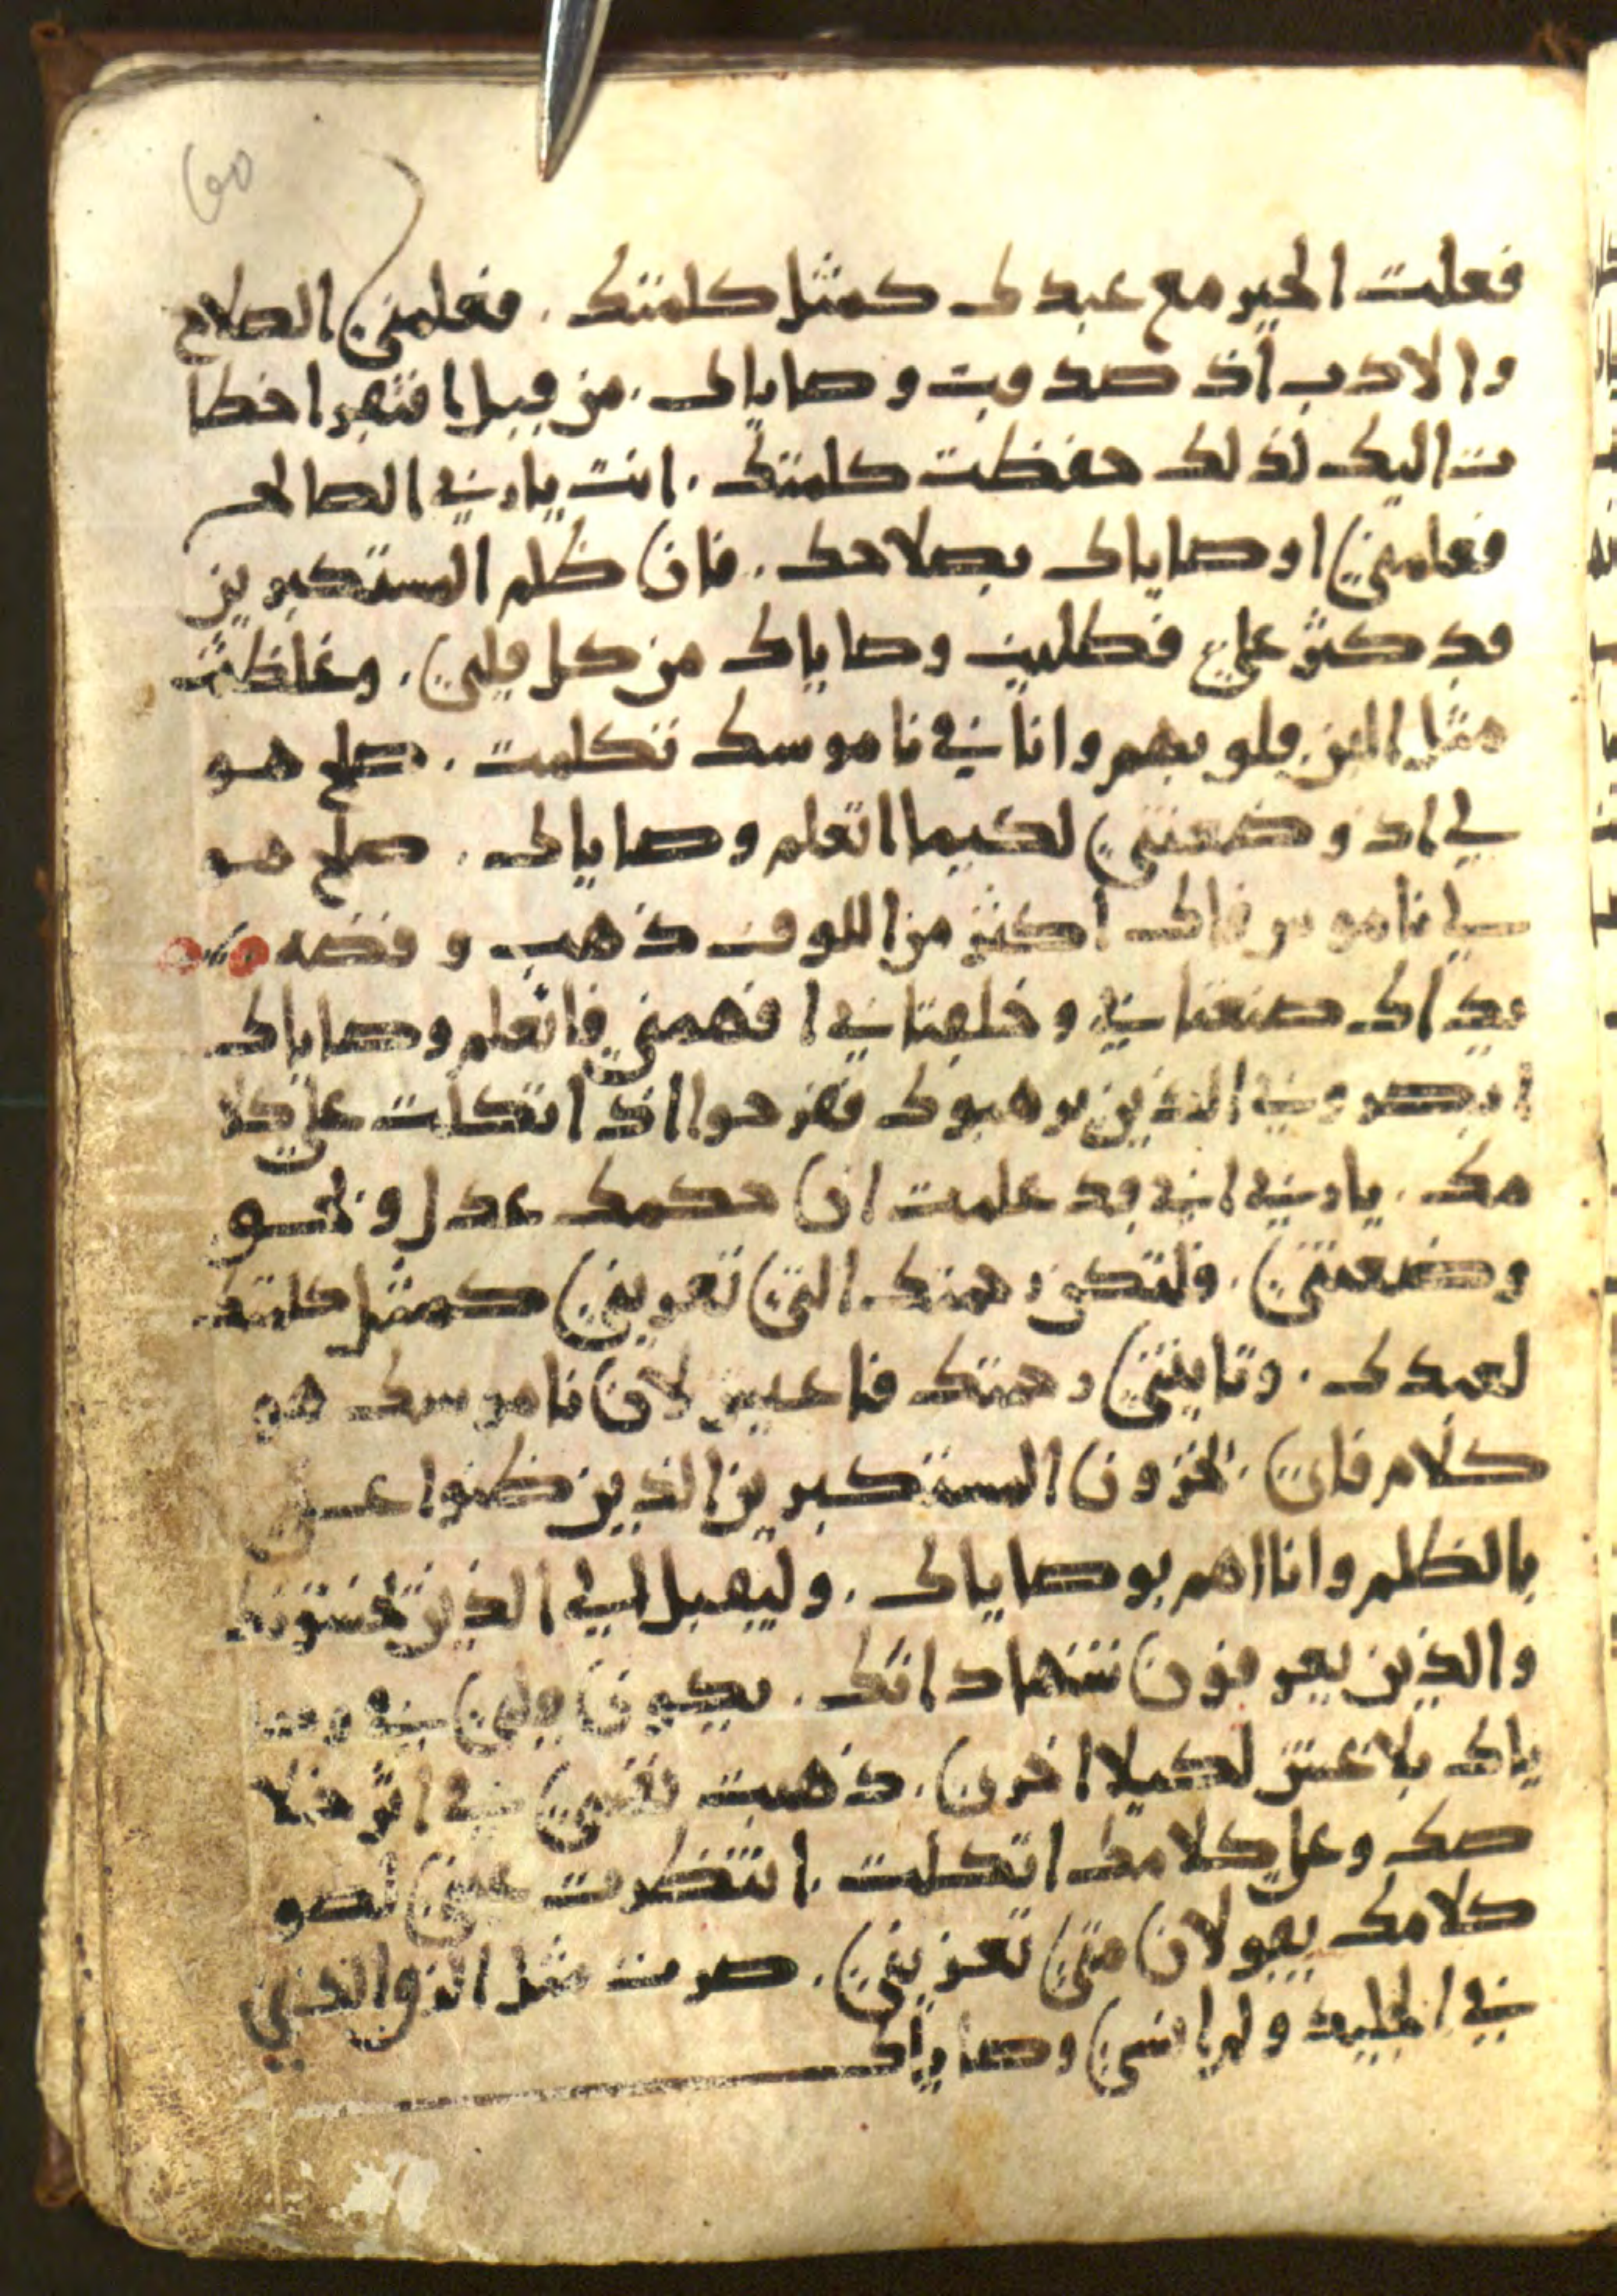 60
فعلت الخير مع عبدك كمثل كلمتك . فعلمني الصلاح
والادب اذ صدقت وصاياك . من قبل اقتهر اخطا
ت اليك لذلك حفظت كلمتك . انت يا رب الصالح
فعلمني اوصاياك بصلاحك . فان ظلم المستكبرين
قد كثر علي فطلبت وصاياك من كل قلبي . وغلظت
مثل اللبن قلوبهم وانا في ناموسك تكلمت . صلح هو
لي اذ وضعتني لكيما اتعلم وصاياك . صلح هو
لي ناموس فاك اكثر من الوف ذهب وفضه
يداك صنعتاني وخلقتاني افهمني فاتعلم وصاياك
ابصروني الذين يرهبوك ففرحوا اذ اتكلت على كلا
مك . يا رب اني قد علمت ان حكمك عدل وبحق
وضعتني . فلتكن رحمتك التي تعزيني كمثل كلمتك
لعبدك . وتاتيني رحمتك فاعيش لان ناموسك هو
كلام فاي . يخزون المستكبرين الذين ظنوا علي
بالظلم وانا اهم بوصاياك . وليقبل الي الذين يخشونك
والذين يعرفون شهاداتك . يكون قلبي في وصا
ياك بلا غش لكيلا اخزى . ذهبت نفسي في اثر خلا
صك وعلى كلامك اتكلت . انتظرت عيني نحو
كلامك يقولان متى تعزيني . صرت مثل الزق الذي
في الجليد ولم انسى وصاياك